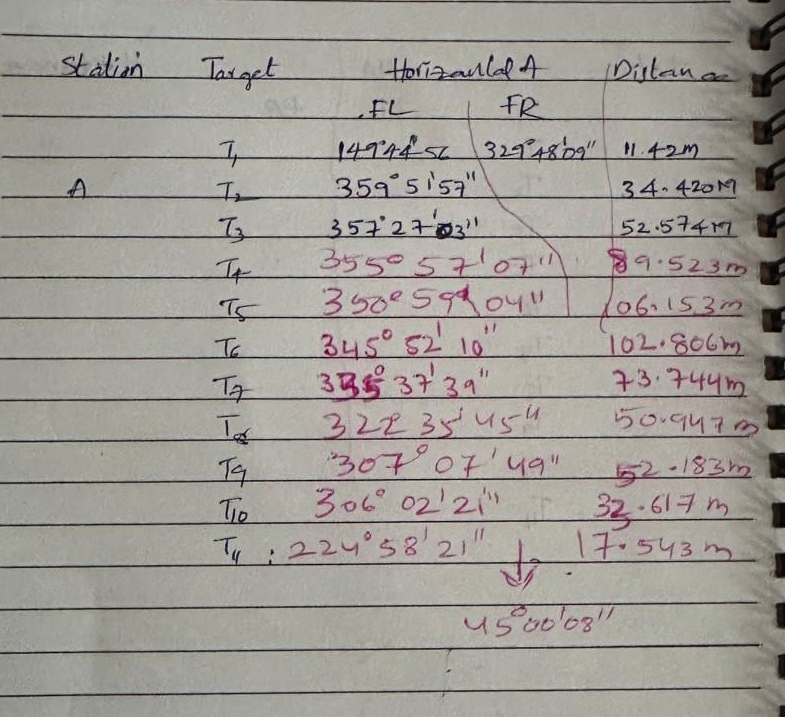 Station Target Horizantal A Distance
FL FR
T1 149°44'56 329°48'09" 11.42m
A T2 359°51'57" 34.420M
T3 357°27'03" 52.574M
T4 355°57'07" 89.523m
T5 350°59'04" 106.153m
T6 345°52'10" 102.806m
T7 335°37'39" 73.744m
T8 322 35'45" 50.947m
T9 307°07'49" 52.183m
T10 306°02'21" 32.617m
T11 : 224°58'21" 17.543m
45°00'08"